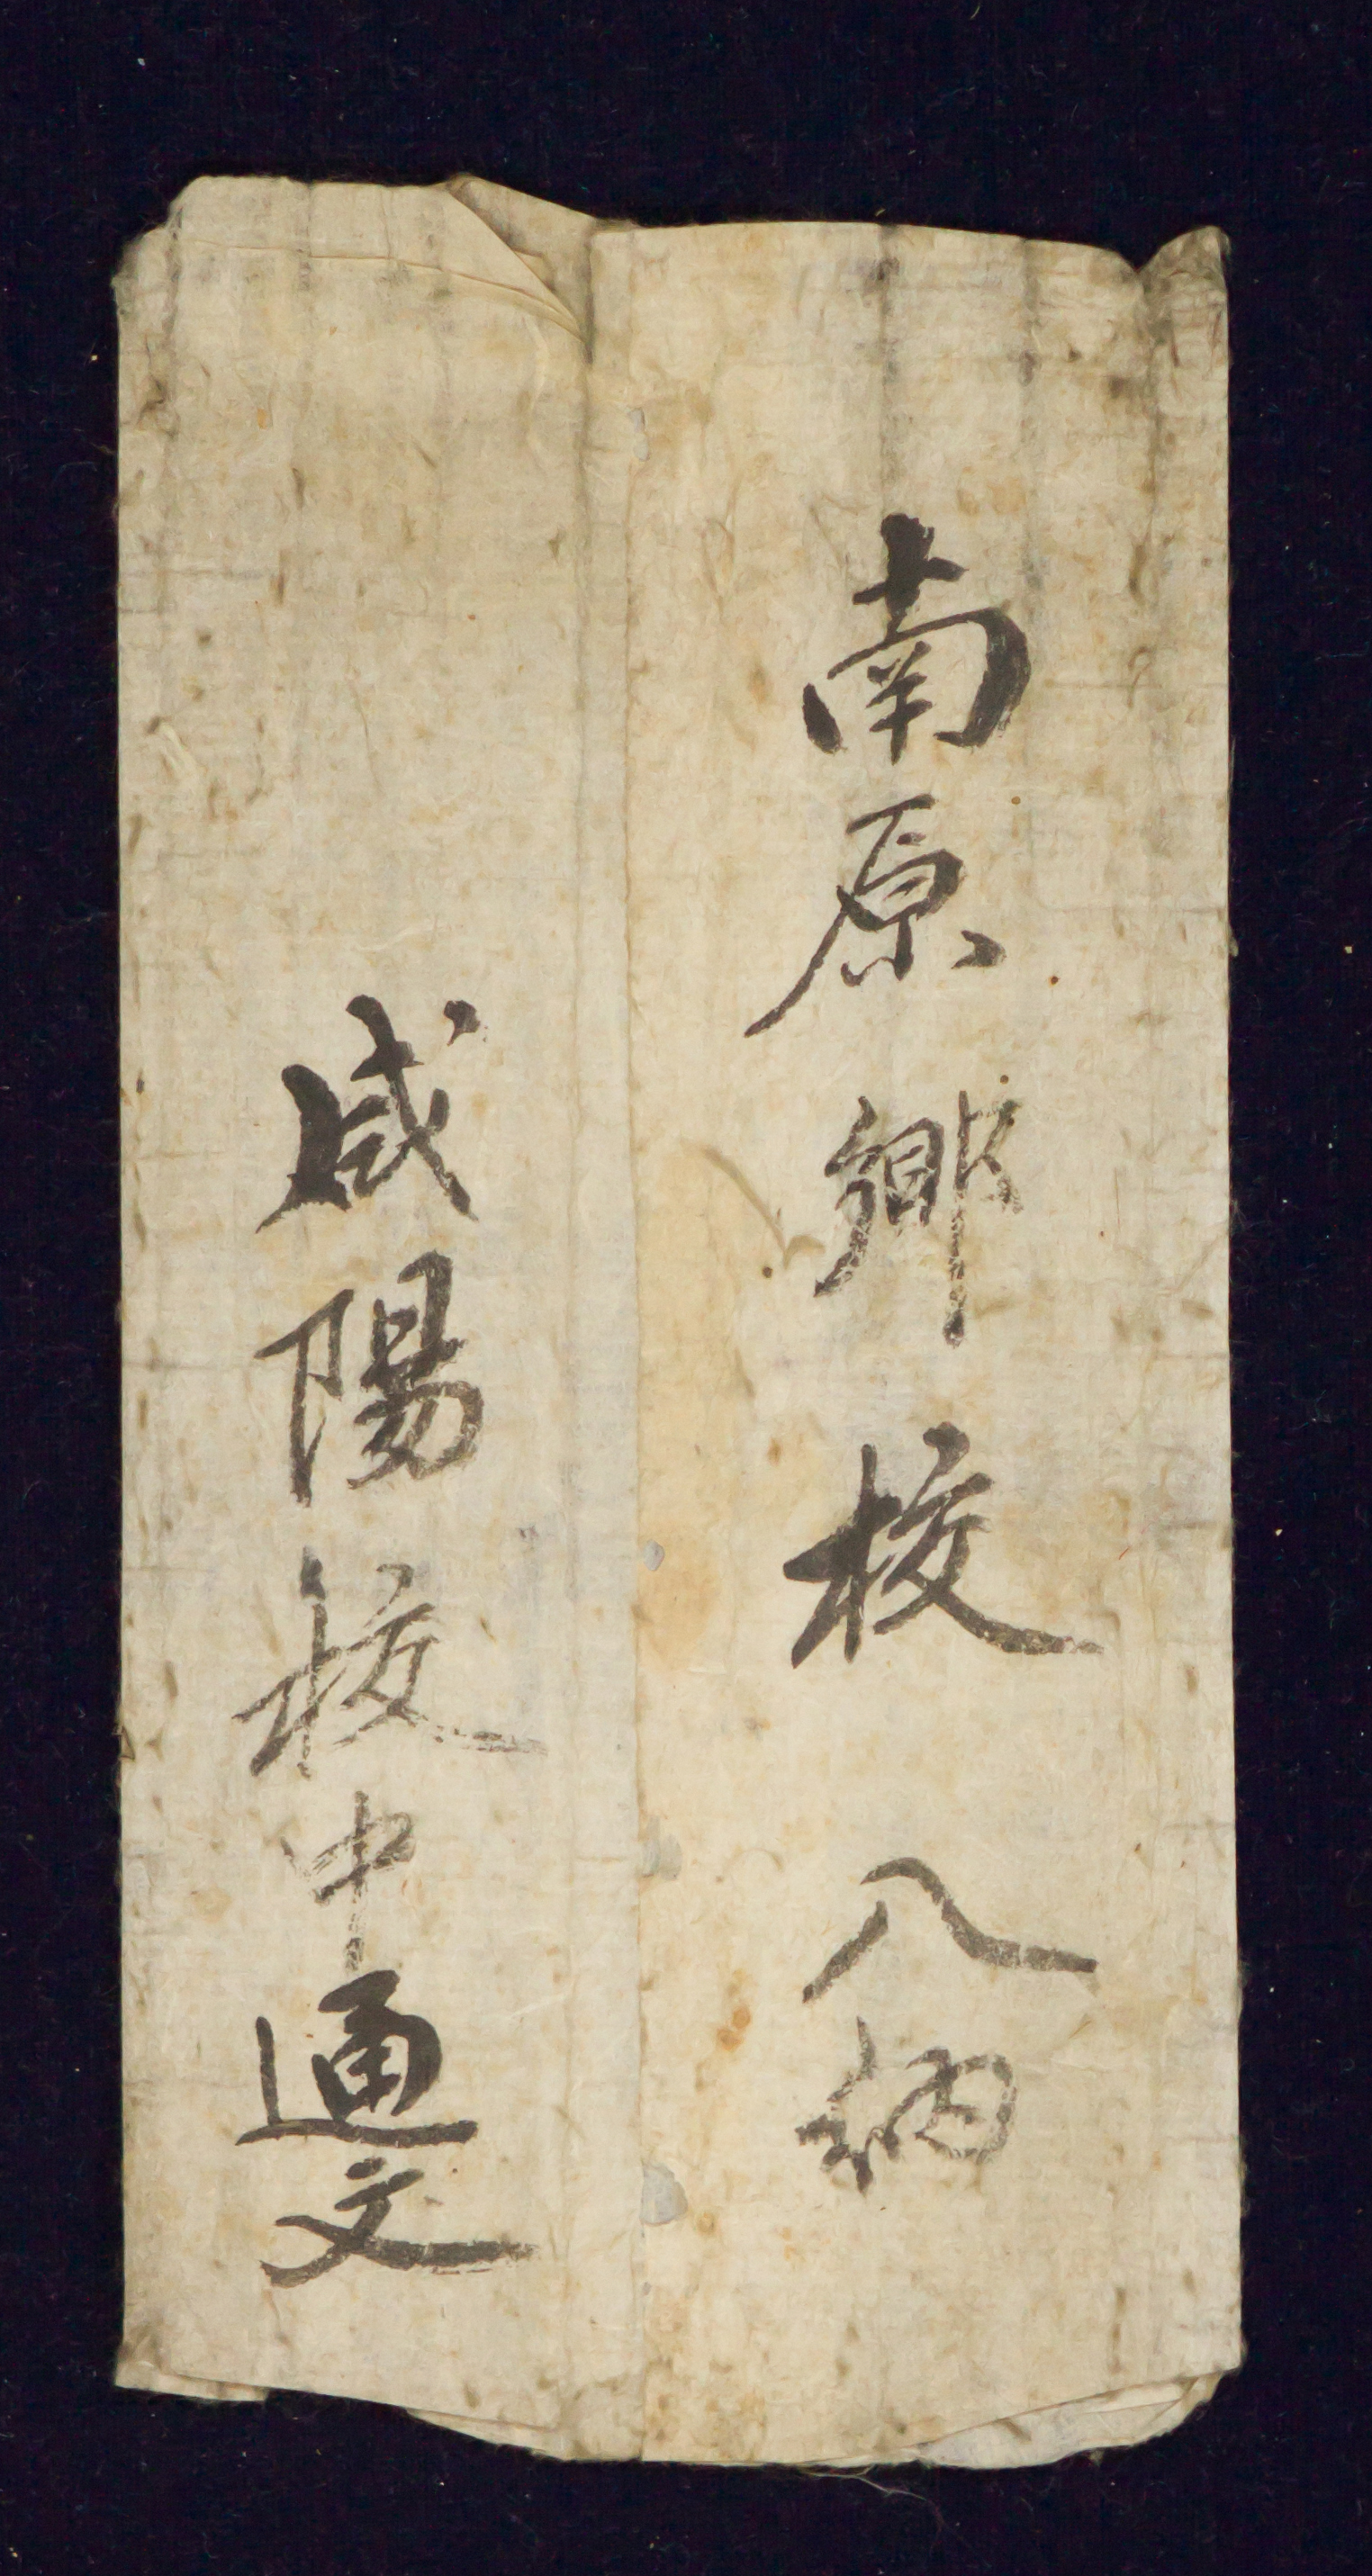 南原鄕校 入納
咸陽校中通文